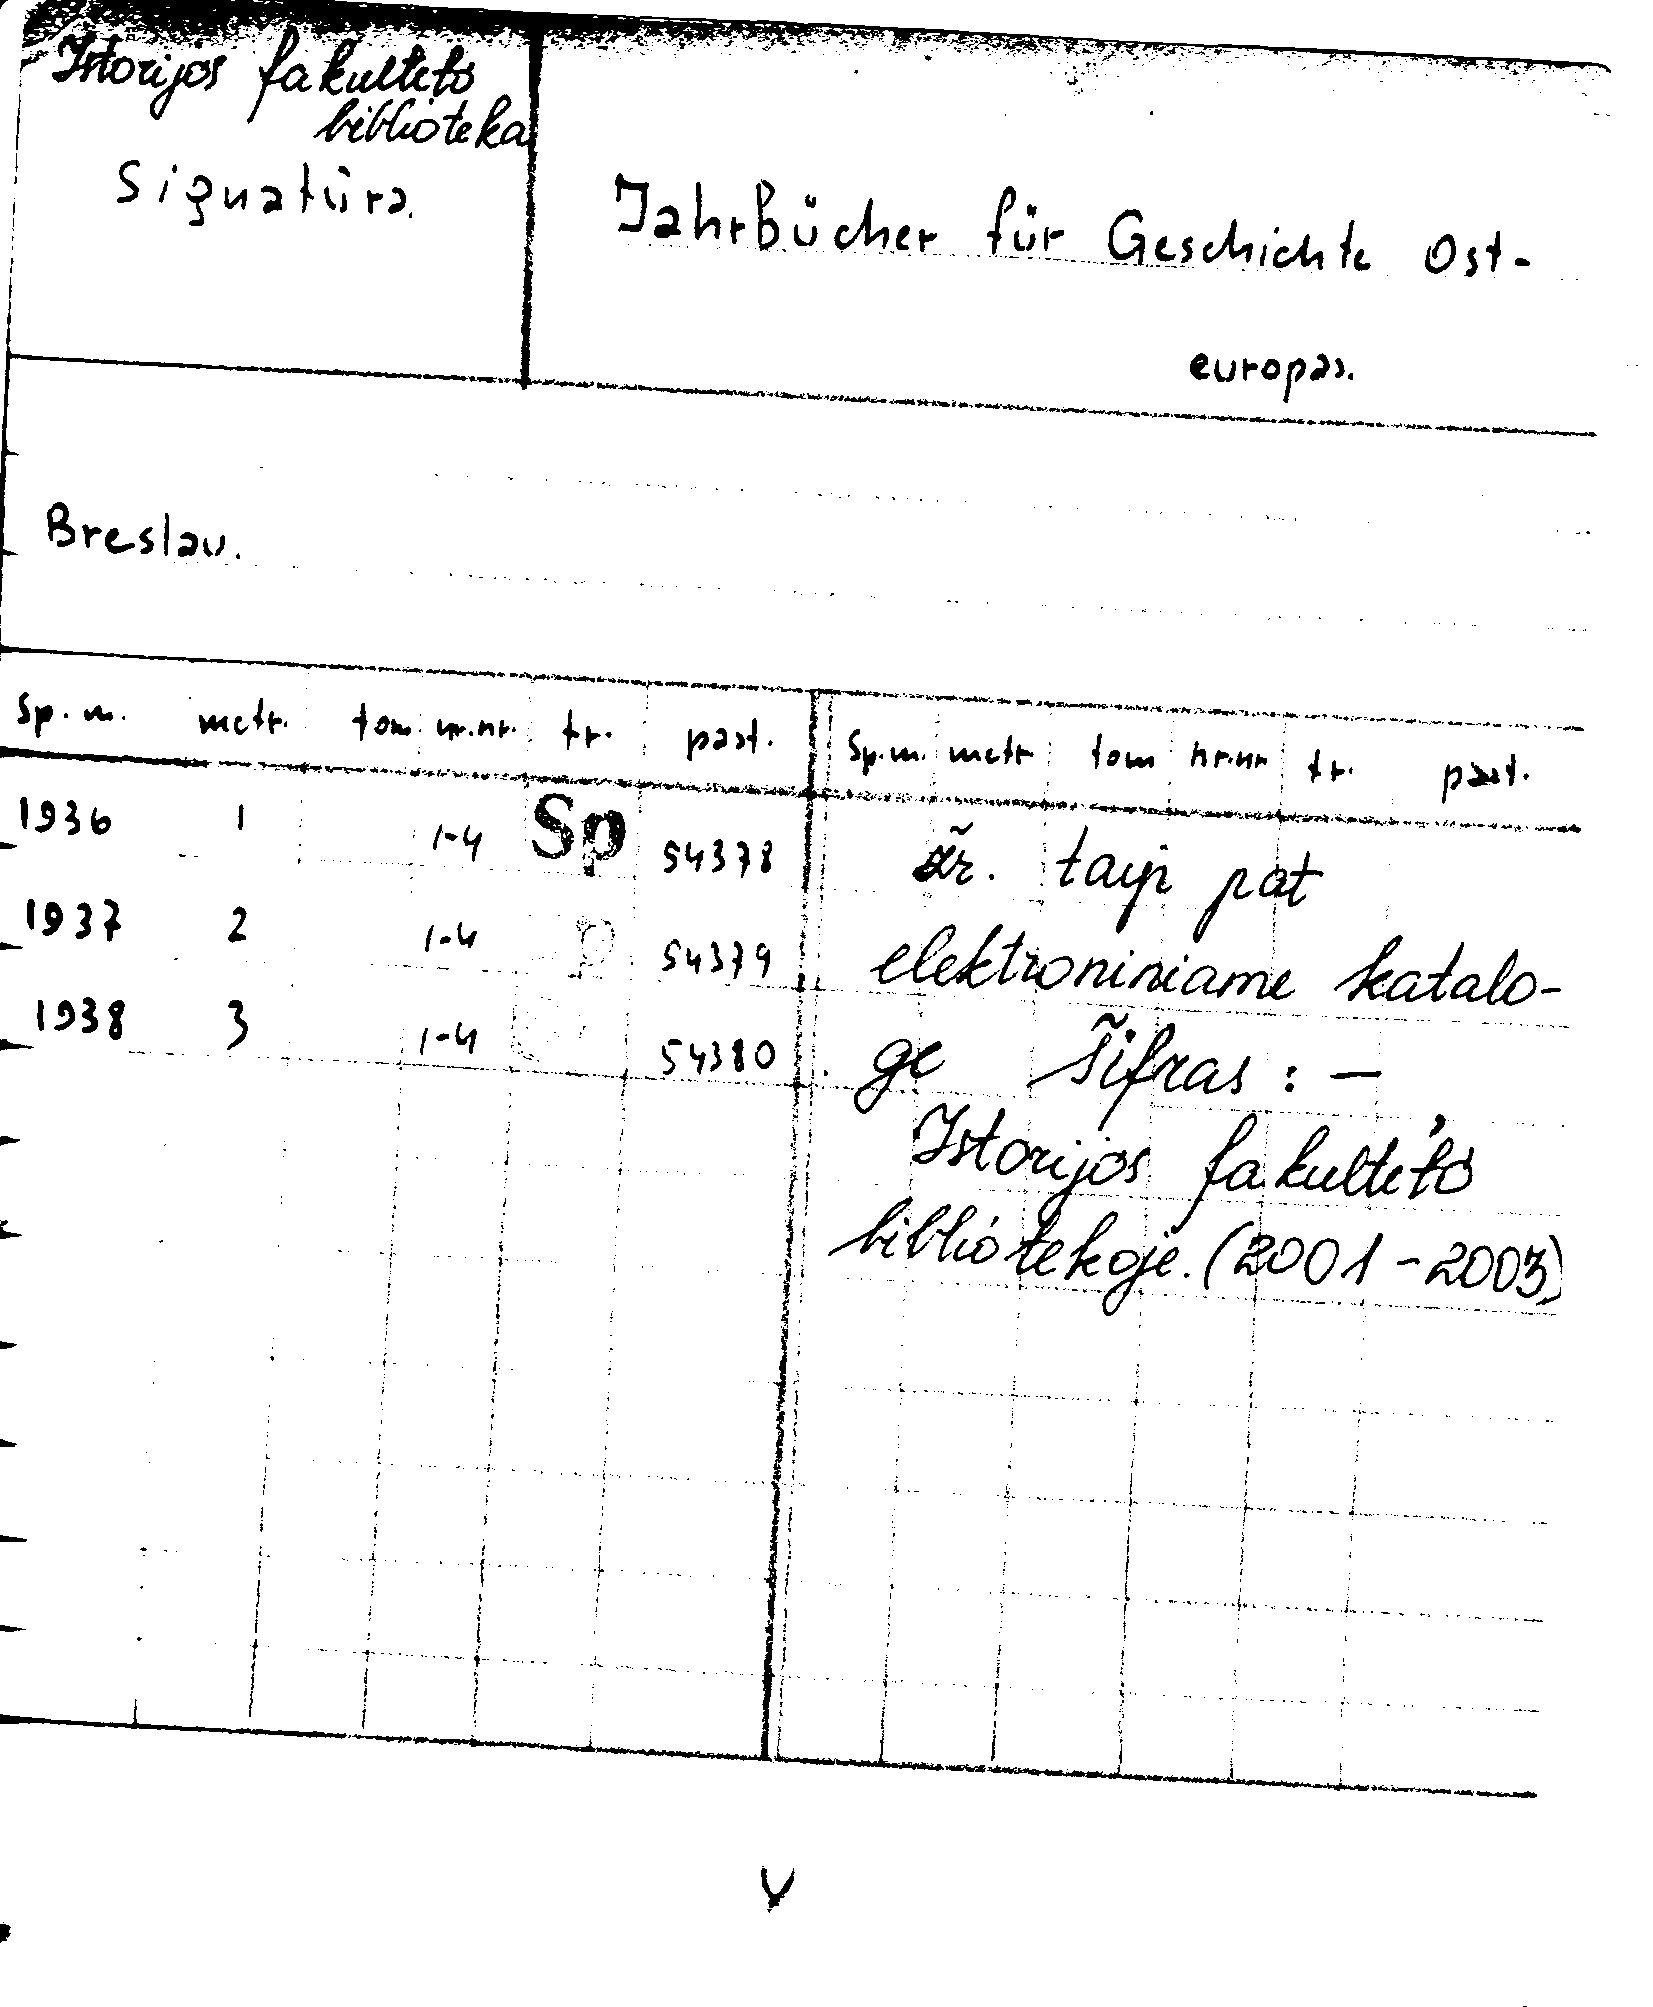 Istorijos fakulteto
biblioteka
Signatūra.
Jahrbücher für Geschichte Ost-
europas.
Breslau.
Sp. m. metr. tom nr.nr. tr. past. Sp.m. metr tom nr.nr tr. past.
1936 1 1-4 Sp 54378
1937 2 1-4 p 54379
1938 3 1-4 54380
žr. taip pat
elektroniniame katalo-
ge Šifras: —
Istorijos fakulteto
bibliotekoje. (2001-2003)